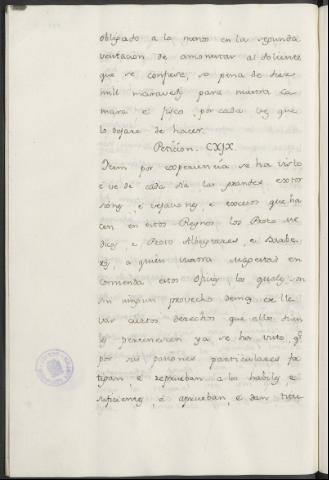 obligado a lo menos en la segunda
visitacion de amonestar al doliente
que se confiese, so pena de diez
mil maravedis para nuestra ca
mara e fisco por cada vez que
lo dejare de hacer.
Peticion. CXJX.
Item por experiencia se ha visto
e ve de cada dia las grandes extor
siones, e vejaciones, e excesos que ha
cen en estos Reynos los Proto me
dicos, e Proto Albeytares, e Barbe
ros, a quien vuestra Magestad en
comienda estos Ofiçios los quales son
sin ningun provecho demas de lle
var ciertos derechos que ellos dicen
les pertenescen ya se ha visto, que
por sus pasiones particulares fa
tigan e repruevan a los habiles, e
suficientes, e aprueban, e dan titu